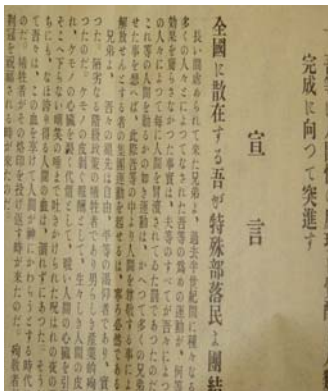 完成に向つて突進す
宣言
全國に散在する吾が特殊部落民よ團結
長い間虐められて來た兄弟よ、過去半世紀間に種々なる
多くの人々とによつてなされた吾等の爲めの運動が、何等
效果を齎らさなかつた事實は、夫等のすべてが吾々によつ
の人々によつて毎に人間を冐瀆されてゐた罰であつたのだ
これ等の人間を勦るかの如き運動は、かへつて多くの兄弟
せた事を想へば、此際吾等の中より人間を尊敬する事によ
解放せんとする者の集團運動を起せるは、寧ろ必然である
兄弟よ、吾々の祖先は自由、平等の渇仰者であり、實
つた。陋劣なる階級政策の犧牲者であり男らしき産業的殉
つたのだ。ケモノの皮剥ぐ報酬として、生々しき人間の皮
れ、ケモノの心臟を裂く代價として、暖い人間の心臟を引
そこへ下らない嘲笑の唾まで吐きかけられた呪はれの夜の
ちにも、なほ誇り得る人間の血は、涸れずにあつた。そう
て吾々は、この血を享けて人間が神にかわらうとする時代
のだ。犧牲者がその烙印を投げ返す時が來たのだ。殉敎者
荊冠を祝福される時が來たのだ。